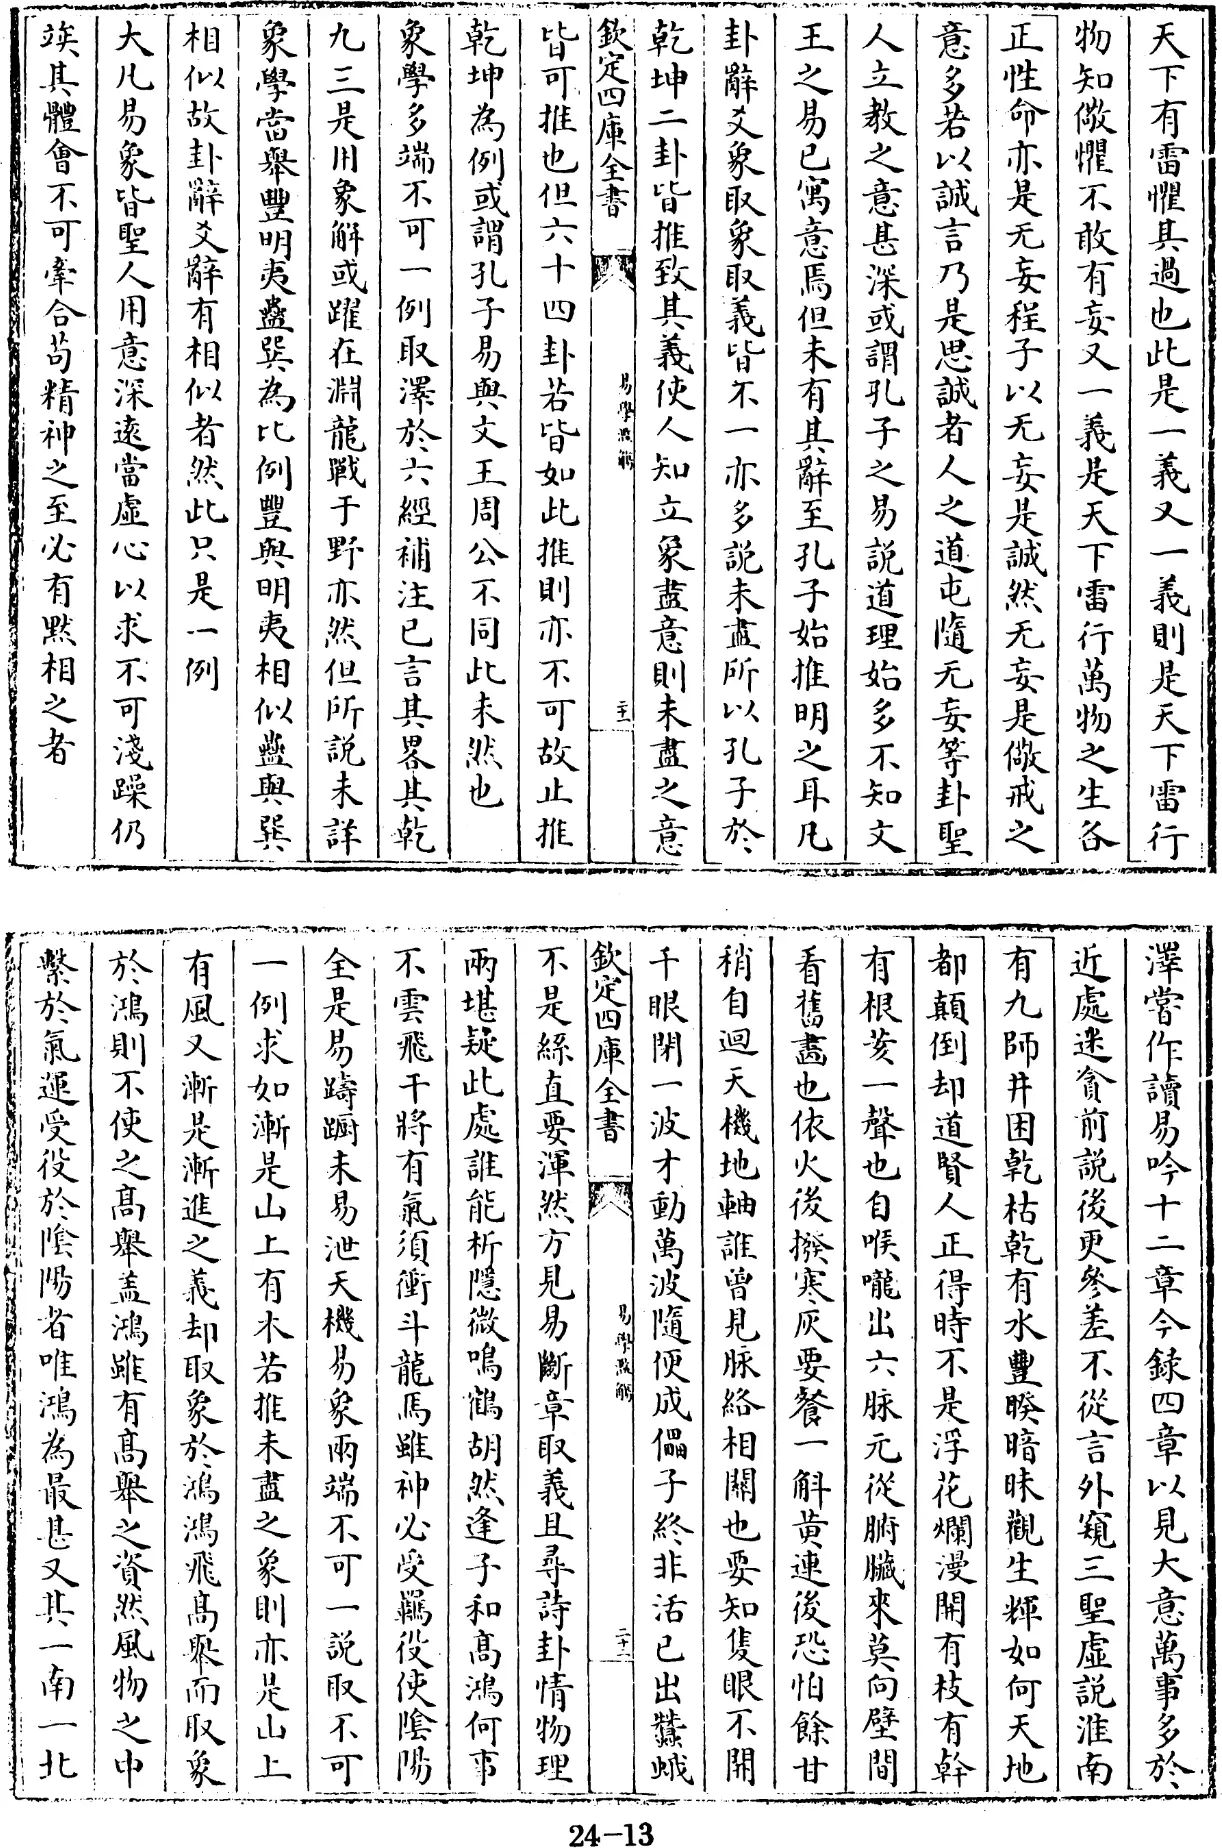 天下有雷懼其過也此是一義又一義則是天下雷行
物知儆懼不敢有妄又一義是天下雷行萬物之生各
正性命亦是无妄程子以无妄是誠然无妄是儆戒之
意多若以誠言乃是思誠者人之道屯隨无妄等卦聖
人立教之意甚深或謂孔子之易說道理始多不知文
王之易已寓意焉但未有其辭至孔子始推明之耳凡
卦辭爻象取象取義皆不一亦多說未盡所以孔子於
乾坤二卦皆推致其義使人知立象盡意則未盡之意
欽定四庫全書
易學濫觴
二十一
皆可推也但六十四卦若皆如此推則亦不可故止推
乾坤為例或謂孔子易與文王周公不同此未然也
象學多端不可一例取澤於六經補注已言其畧其乾
九三是用象解或躍在淵龍戰于野亦然但所說未詳
象學當舉豐明夷蠱巽為比例豐與明夷相似蠱與巽
相似故卦辭爻辭有相似者然此只是一例
大凡易象皆聖人用意深遠當虛心以求不可淺躁仍
竢其體會不可牽合苟精神之至必有黙相之者
澤嘗作讀易吟十二章今録四章以見大意萬事多於
近處迷貪前說後更參差不從言外窺三聖虛說淮南
有九師井困乾枯乾有水豐睽暗昧觀生輝如何天地
都顛倒却道賢人正得時不是浮花爛漫開有枝有幹
有根荄一聲也自喉嚨出六脉元從腑臟來莫向壁間
看舊畫也依火後撥寒灰要餐一斛黄連後恐怕餘甘
稍自迴天機地軸誰曾見脉絡相關也要知隻眼不開
千眼閉一波才動萬波隨便成傀儡子終非活已出蠶蛾
欽定四庫全書
易學濫觴
二十二
不是絲直要渾然方見易斷章取義且尋詩卦情物理
兩堪疑此處誰能析隱微鳴鶴胡然逢子和高鴻何事
不雲飛干將有氣須衝斗龍馬雖神必受羈役使隂陽
全是易躊躕未易泄天機易象兩端不可一說取不可
一例求如漸是山上有木若推未盡之象則亦是山上
有風又漸是漸進之義却取象於鴻鴻飛髙舉而取象
於鴻則不使之髙舉盖鴻雖有髙舉之資然風物之中
繫於氣運受役於隂陽者唯鴻為最甚又其一南一北
24-13